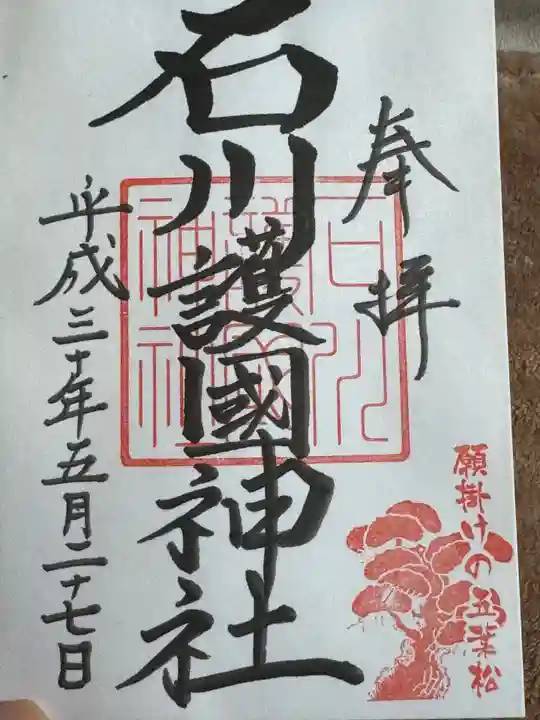 奉拝
石川護國神社
石川
護國
神社
平成三十年五月二十七日
願掛けの五葉松